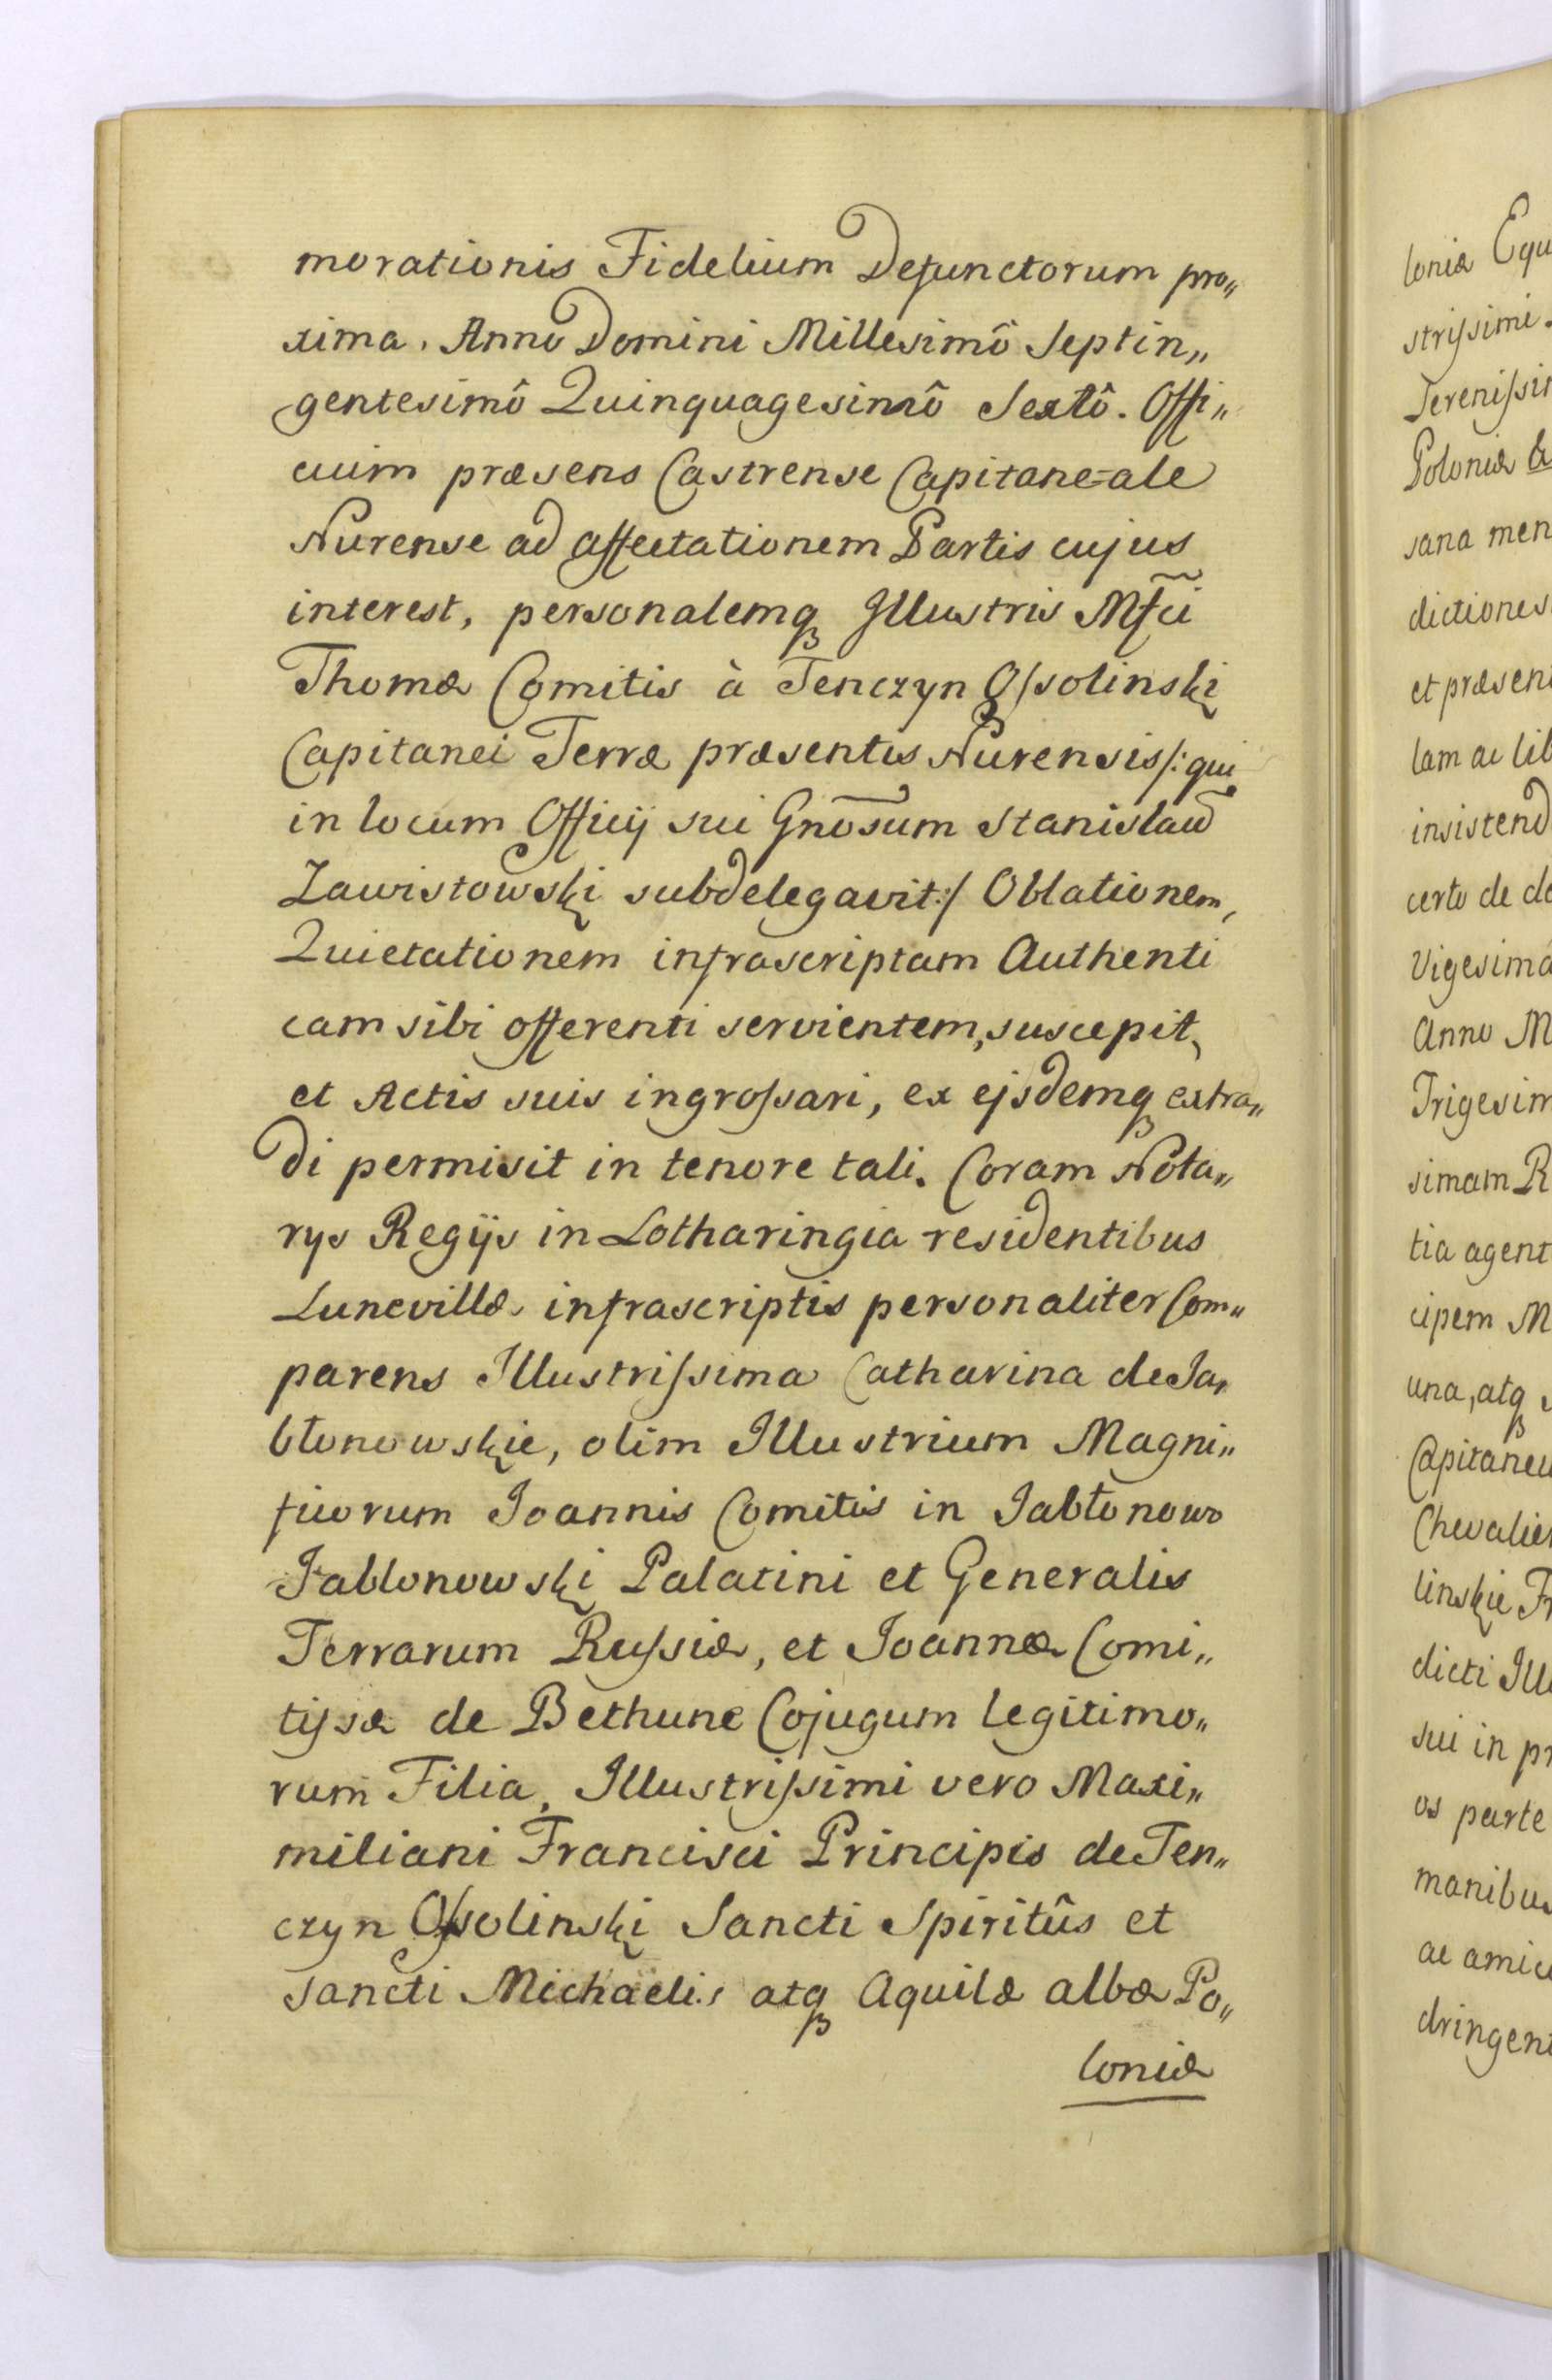 morationis Fidelium Defunctorum pro„
xima. Anno Domini Millesimô Septin„
gentesimô Quinquagesimô Sextô. Offi„
cium præsens Castrense Capitane=ale
Nurense ad affectationem Partis cujus
interest, personalemq Illustris Mfci
Thomæ Comitis à Tenczyn Ossolinski
Capitanei Terræ præsentis Nurensis/: qui
in locum Officij sui Gnosum Stanislaum
Zawistowski subdelegavit:/ Oblationem,
Quietationem infrascriptam Authenti
cam sibi offerenti servientem, suscepit,
et Actis suis ingrossari, ex ejsdemq extra„
di permisit in tenore tali. Coram Nota„
rys Regijs in Lotharingia residentibus
Lunevillæ infrascriptis personaliter Com„
parens Illustrissima Catharina de Ja„
błonowskie, olim Illustrium Magni„
ficorum Joannis Comitis in Jabłonowo
Jablonowski Palatini et Generalis
Terrarum Russiæ, et Joannæ Comi„
tissæ de Bethune Cojugum legitimo„
rum Filia, Illustrissimi vero Maxi„
miliani Francisci Principis de Ten„
czyn Ossolinski Sancti Spiritûs et
Sancti Michaelis atq Aquilæ albæ Po„
loniæ
loniæ Equ
strissimi
Serenissi
Poloniæ &
sana men
dictiones
et præsen
lam ac lib
insistend
certo de de
Vigesima
Anno M
Trigesim
simam R
tia agent
cipem M
una, atq
Capitaneu
Chevalier
linskie Fr
dicti Illu
sui in pr
os parte
manibus
ac amic
dringent